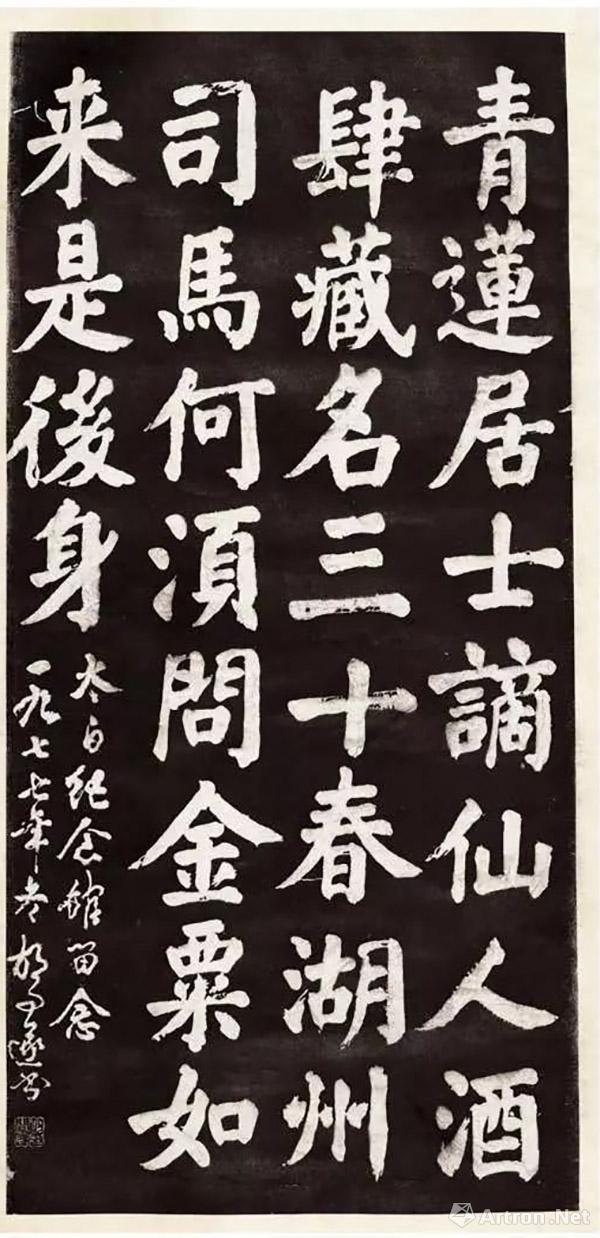 青蓮居士謫仙人酒
肆藏名三十春湖州
司馬何湏問金粟如
来是後身
太白纪念馆留念
一九七七年冬胡问遂书
Artron.Net